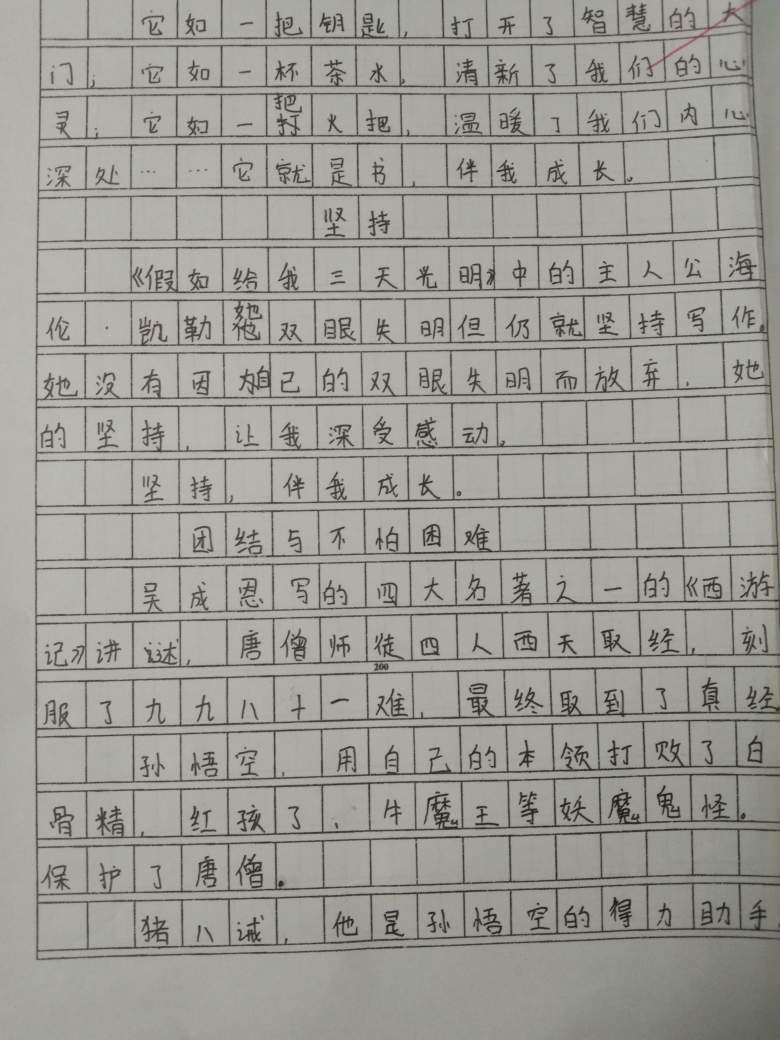 它如一把钥匙，打开了智慧的大
门；它如一杯茶水，清新了我们的心
灵；它如一把火把，温暖了我们内心
深处……它就是书，伴我成长。
坚持
《假如给我三天光明》中的主人公海
伦·凯勒她双眼失明但仍就坚持写作。
她没有因为自己的双眼失明而放弃，她
的坚持，让我深受感动。
坚持，伴我成长。
团结与不怕困难
吴成恩写的四大名著之一的《西游
记》讲述，唐僧师徒四人西天取经，刻
200
服了九九八十一难，最终取到了真经
孙悟空，用自己的本领打败了白
骨精，红孩了、牛魔王等妖魔鬼怪。
保护了唐僧。
猪八诫，他是孙悟空的得力助手